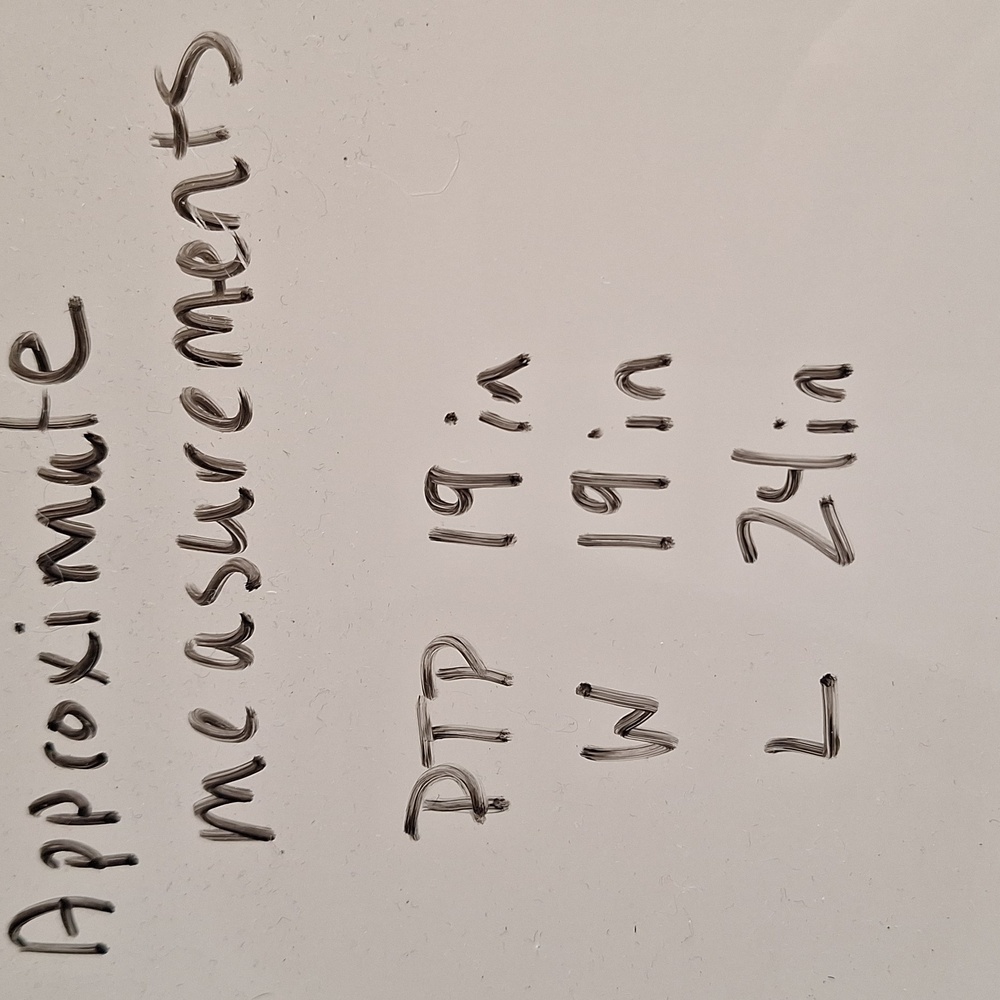 Approximate
measurements
PTP 19 in
W 19 in
L 24 in